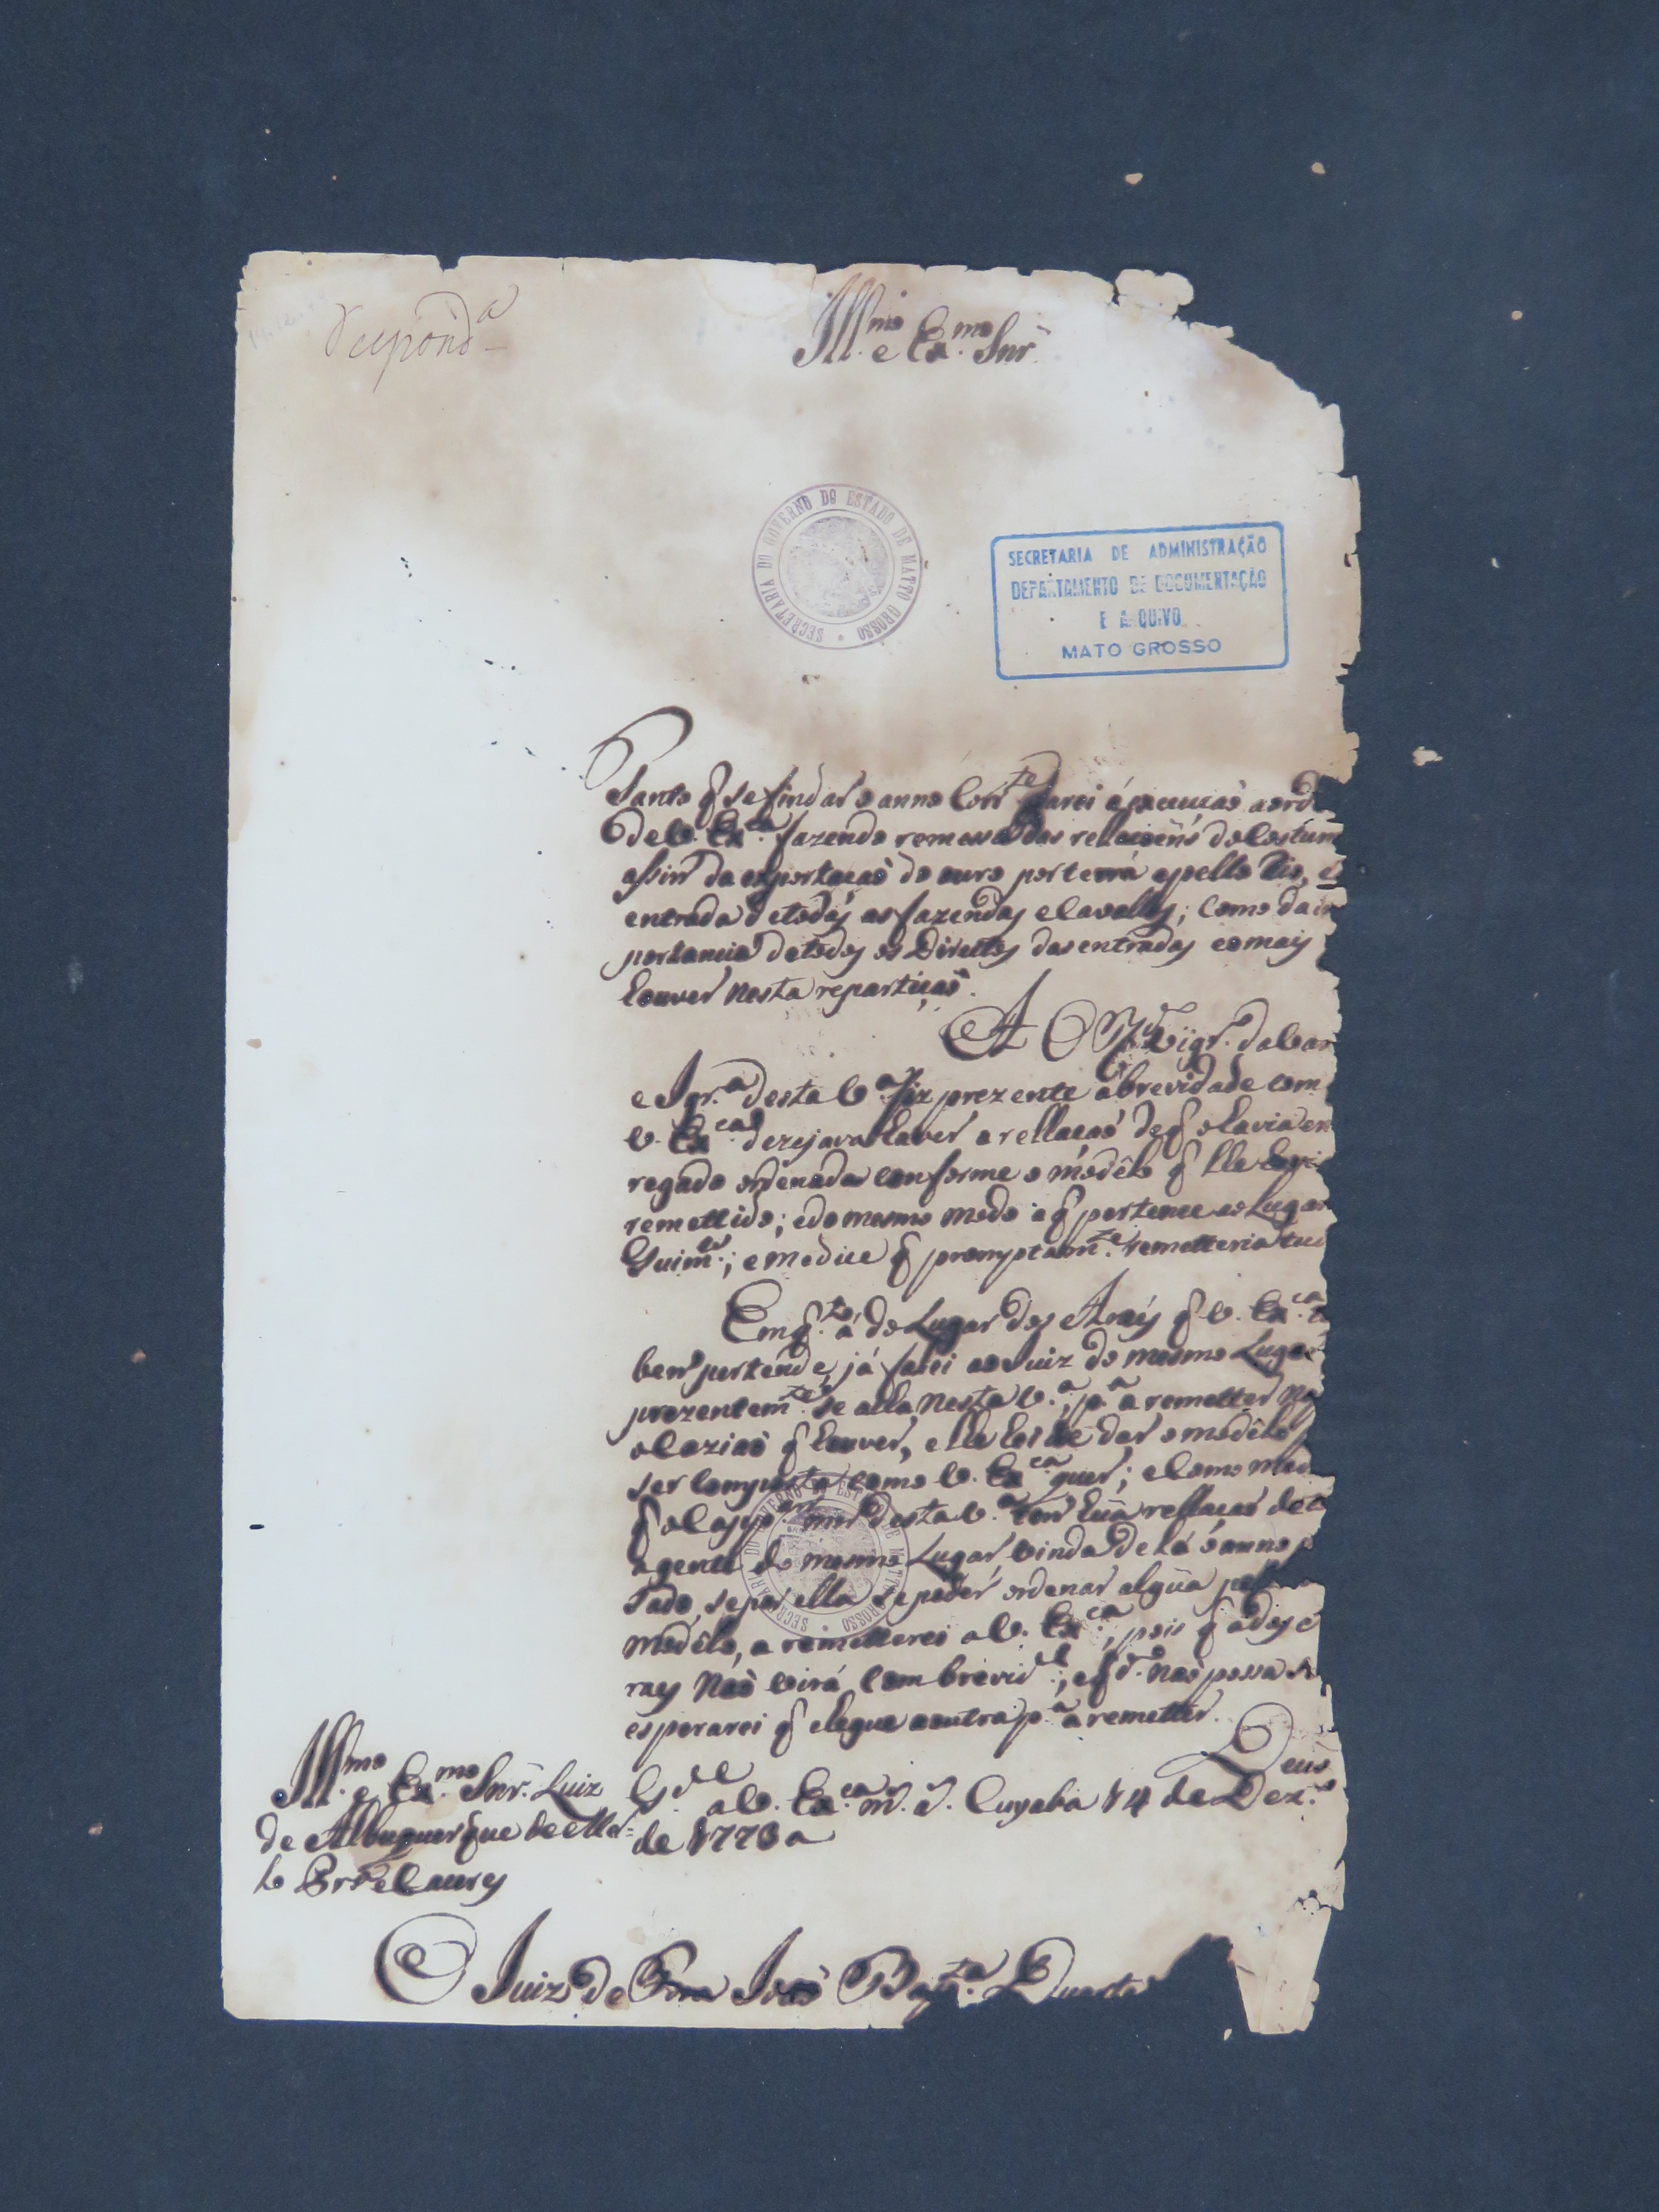 Respond.ª
Ill.mo e Ex.mo Snr.
SECRETARIA DO GOVERNO DO ESTADO DE MATTO GROSSO
SECRETARIA DE ADMINISTRAÇÃO
DEPARTAMENTO DE DOCUMENTAÇÃO
E ARQUIVO
MATO GROSSO
Tanto q se findar o anno Corr.te darei á execução a ord
de V. Ex.ca fazendo remessa das rellacoens do Costum
assim da exportacaõ do ouro por terra e pello Rio, e
entrada de todas as fazendas e Cavallos; Como da im
portancia de todos os Direitos das entradas e o mais
houver nesta reparticaõ.
Vigr.º da Var
e Igr.ª desta V.ª fiz prezente a brevidade com
V. Ex.ca dezejava haver a rellacaõ de q o havia en
regado ordenada conforme o modêlo q lhe
remettido; e do mesmo modo a q pertence ao Lugar
Guim.es; e me dice q promptam.te remetteria tud
Em q.to á do Lugar dos Araés q V. Ex.ca
bem pertende, já falei ao Juiz do mesmo Lugar
prezentem.te se acha nesta V.ª, p.ª a remetter na
ocaziaõ q houver, e lhe hei de dar o modêlo p
ser composta como V. Ex.ca quer; e Como me
q o Cap.m mor desta V.ª tem huã rellacaõ de to
a gente do mesmo Lugar, vinda de lá o anno p
sado, se por ella se poder ordenar algũa pello
modêlo, a remetterei a V. Ex.ca, pois q a dos
raes naõ virá com brevid.e; e q.do naõ possa
esperarei q chegue a outra p.ª a remetter.
Deus
G.de a V. Ex.ca m. a. Cuyaba 14 de Dez.º
de 1773 a
Ill.mo e Ex.mo Snr. Luiz
de Albuquerque de Mel=
lo Pr.ª e Caceres
O Juiz de Fora Joaõ Bap.ta Duarte
SECRETARIA DO GOVERNO DO ESTADO DE MATTO GROSSO